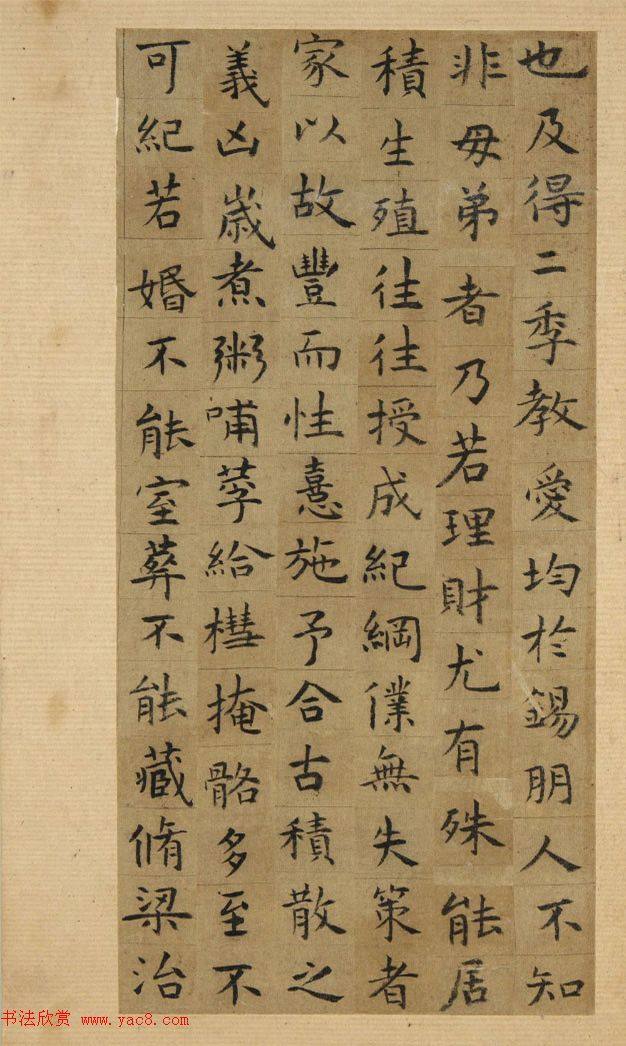 也及得二季教愛均於錫朋人不知
非母弟者乃若理財尤有殊能居
積生殖往往授成紀綱僕無失策者
家以故豐而性憙施予合古積散之
義凶歲煮粥哺莩給槥掩骼多至不
可紀若婚不能室葬不能藏脩梁治
书法欣赏 www.yac8.com